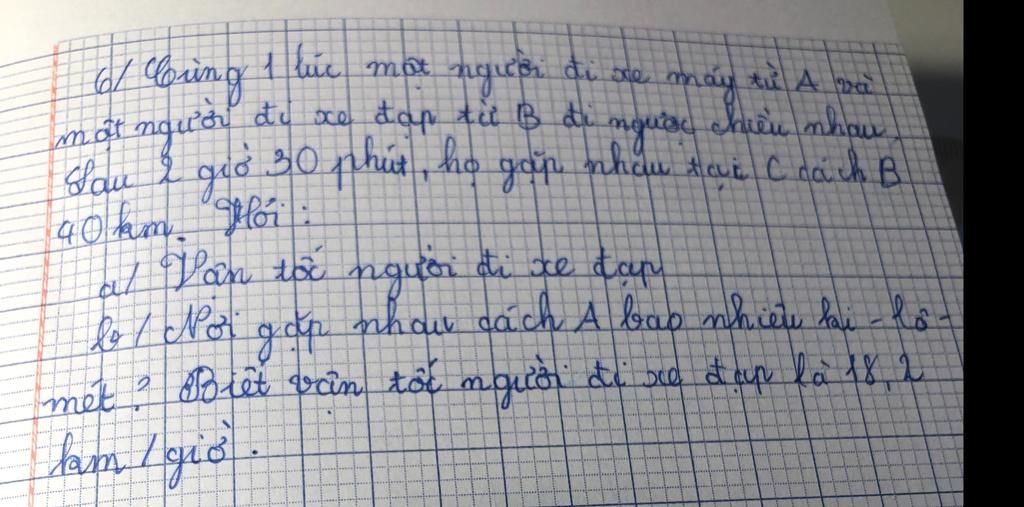 6/ Cùng 1 lúc một người đi xe máy từ A và
một người đi xe đạp từ B đi ngược chiều nhau.
Sau 2 giờ 30 phút, họ gặp nhau tại C cách B
40 km. Hỏi :
a/ Vận tốc người đi xe đạp
b/ Nơi gặp nhau cách A bao nhiêu ki - lô -
mét? Biết vận tốc người đi xe đạp là 18,2
km / giờ.